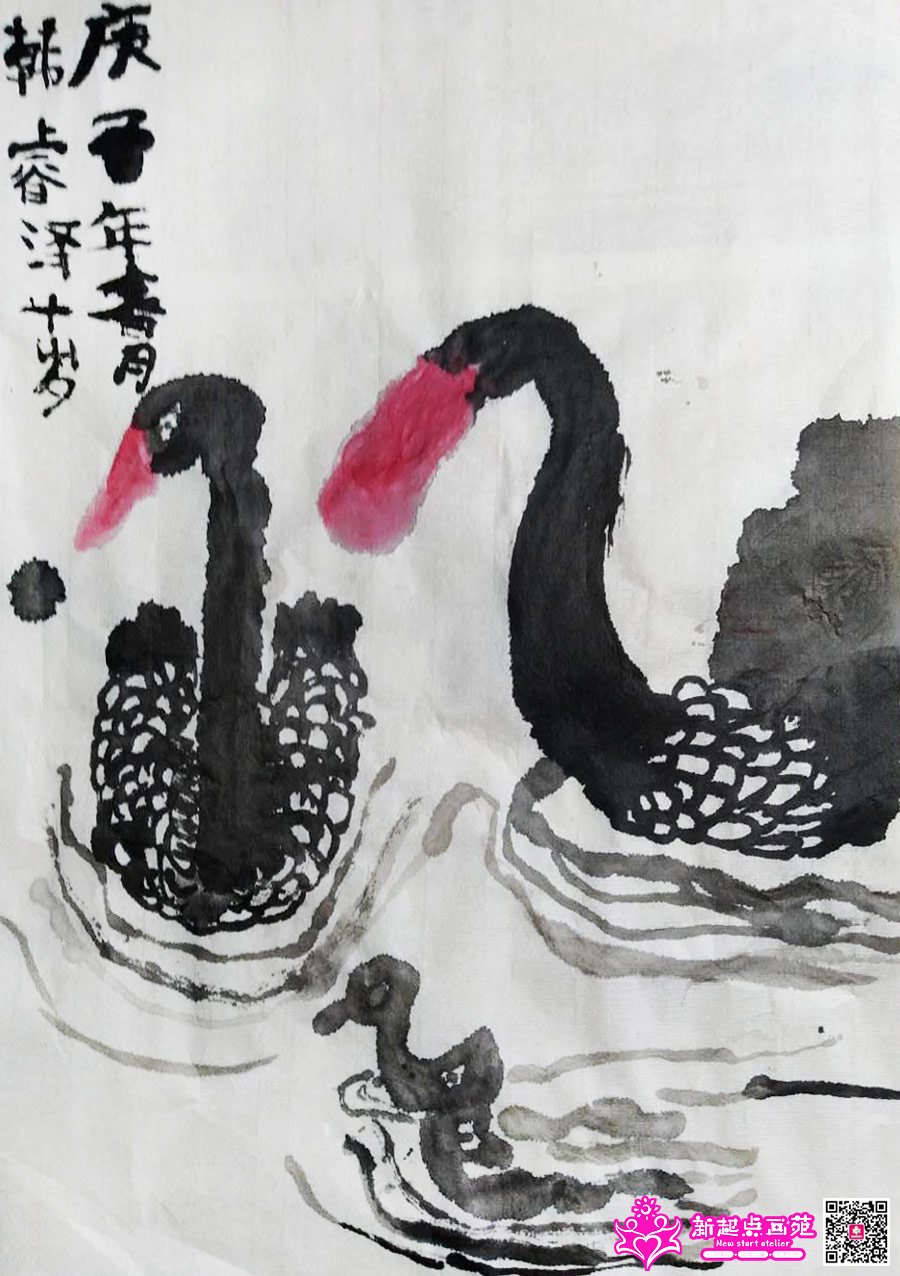 庚子年春月
韩上睿泽十岁
新起点画苑
New start atelier